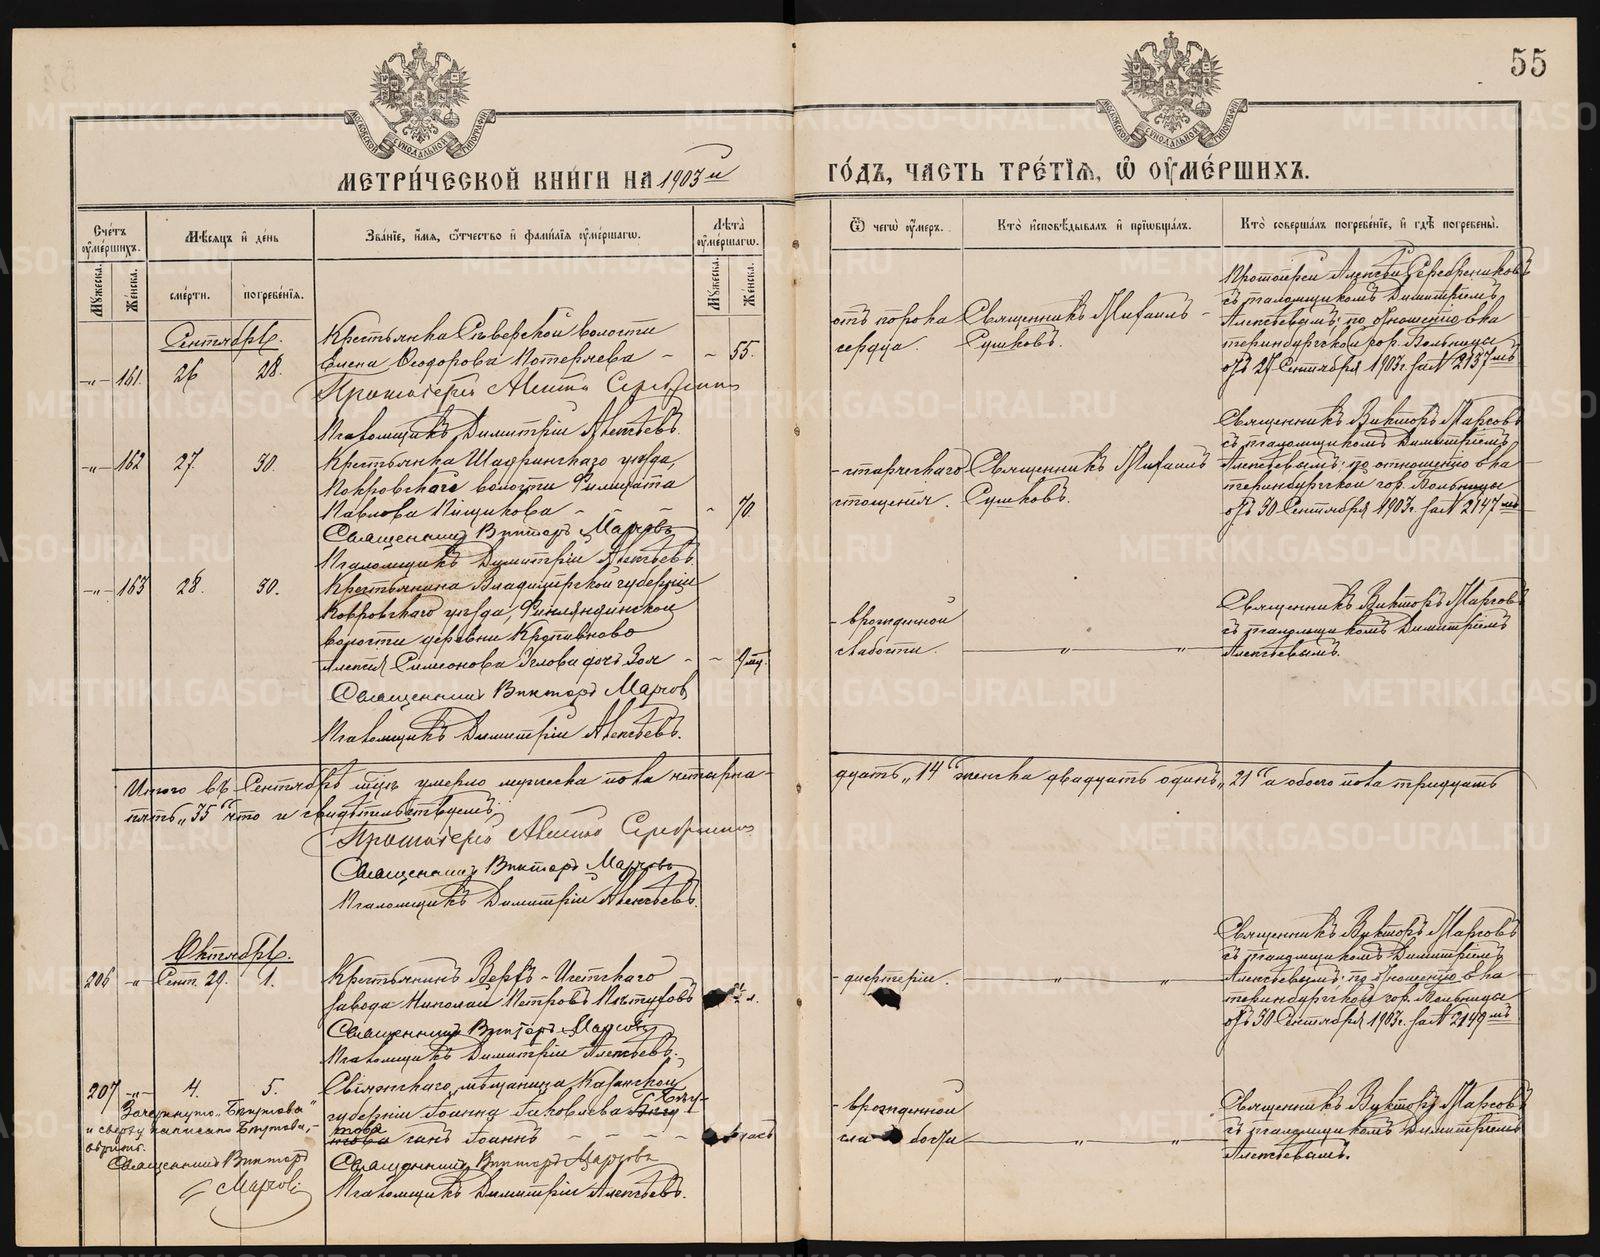 55
МЕТРИ́ЧЕСКОЙ КНИ́ГИ НА 1903 й
ГО́ДЪ, ЧАСТЬ ТРЕ́ТІѦ, Ѿ ОУМЕ́РШИХЪ.
Сче́тъ оуме́ршихъ.
Мѣсяцъ и де́нь
Зва́ніе, и́мя, о́тчество и фами́лія оуме́ршагѡ.
Лѣ́та оуме́ршагѡ.
Ѿ чегѡ̀ оу́меръ.
Кто̀ исповѣ́дывалъ и пріѡбща́лъ.
Кто̀ соверша́лъ погребе́ніе, и гдѣ̀ погребены̀.
Му́жеска.
Же́нска.
сме́рти.
погребе́нія.
Му́жеска.
Же́нска.
Сентябрь.
-„- 161. 26 28.
Крестьянка Сѣверской волости
Елена Ѳеодорова Потеряева - - 55.
Протоіерей
Псаломщикъ Димитрій Алексѣевъ.
отъ порока
сердца.
Священникъ Михаилъ
Сушковъ.
Протоіерей Алексѣй Серебрениковъ
съ псаломщикомъ Димитріемъ
Алексѣевымъ; по отношенію Ека
теринбургской гор. Больницы
отъ 27 Сентября 1903 г. за № 2137 мъ
-„- 162 27. 30.
Крестьянка Шадринскаго уѣзда,
Покровской волости Филицата
Павлова Пищикова - - - - 70.
Священникъ Викторъ Марковъ
Псаломщикъ Димитрій Алексѣевъ.
- старческаго
истощенія.
Священникъ Михаилъ
Сушковъ.
Священникъ Викторъ Марковъ
съ псаломщикомъ Димитріемъ
Алексѣевымъ; по отношенію Ека
теринбургской гор. Больницы
отъ 30 Сентября 1903 г. за № 2147 мъ
-„- 163 28. 30.
Крестьянина Владимірской губерніи
Ковровскаго уѣзда,
волости деревни
Алексѣя Симеонова дочь Зоя - - 9 мц.
Священникъ Викторъ Марков
Псаломщикъ Димитрій Алексѣевъ.
- врожденной
слабости. — „ — „ —
Священникъ Викторъ Марковъ
съ псаломщикомъ Димитріемъ
Алексѣевымъ.
Итого въ Сентябрѣ мцѣ умерло мужеска пола четырна-
дцать „14“ женска двадцать одинъ „21“ а обоего пола тридцать
пять „35“ что и свидѣтельствуемъ:
Протоіерей
Священникъ Викторъ Марковъ
Псаломщикъ Димитрій Алексѣевъ.
Октябрь.
206 -„- Сент. 29. 1.
Крестьянинъ Верхъ-Исетскаго
завода Николай Петровъ Пѣтуховъ л.
Священникъ Викторъ Марковъ
Псаломщикъ Димитрій Алексѣевъ.
- дифтеріи. — „ — „ —
Священникъ Викторъ Марковъ
съ псаломщикомъ Димитріемъ
Алексѣевымъ; по отношенію Ека
теринбургской гор. Больницы
отъ 30 Сентября 1903 г. за № 2149 мъ
207 -„- 4. 5.
Свіяжскаго мѣщанина Казанской
губерніи Іоанна Іаковлева
сынъ Іоаннъ - - - - часъ
Священникъ Викторъ Марковъ
Псаломщикъ Димитрій Алексѣевъ.
Зачеркнуто
и сверху написано
вѣрить.
Священникъ Викторъ
Марковъ
- врожденной
слабости — „ — „ —
Священникъ Викторъ Марковъ
съ псаломщикомъ Димитріемъ
Алексѣевымъ.